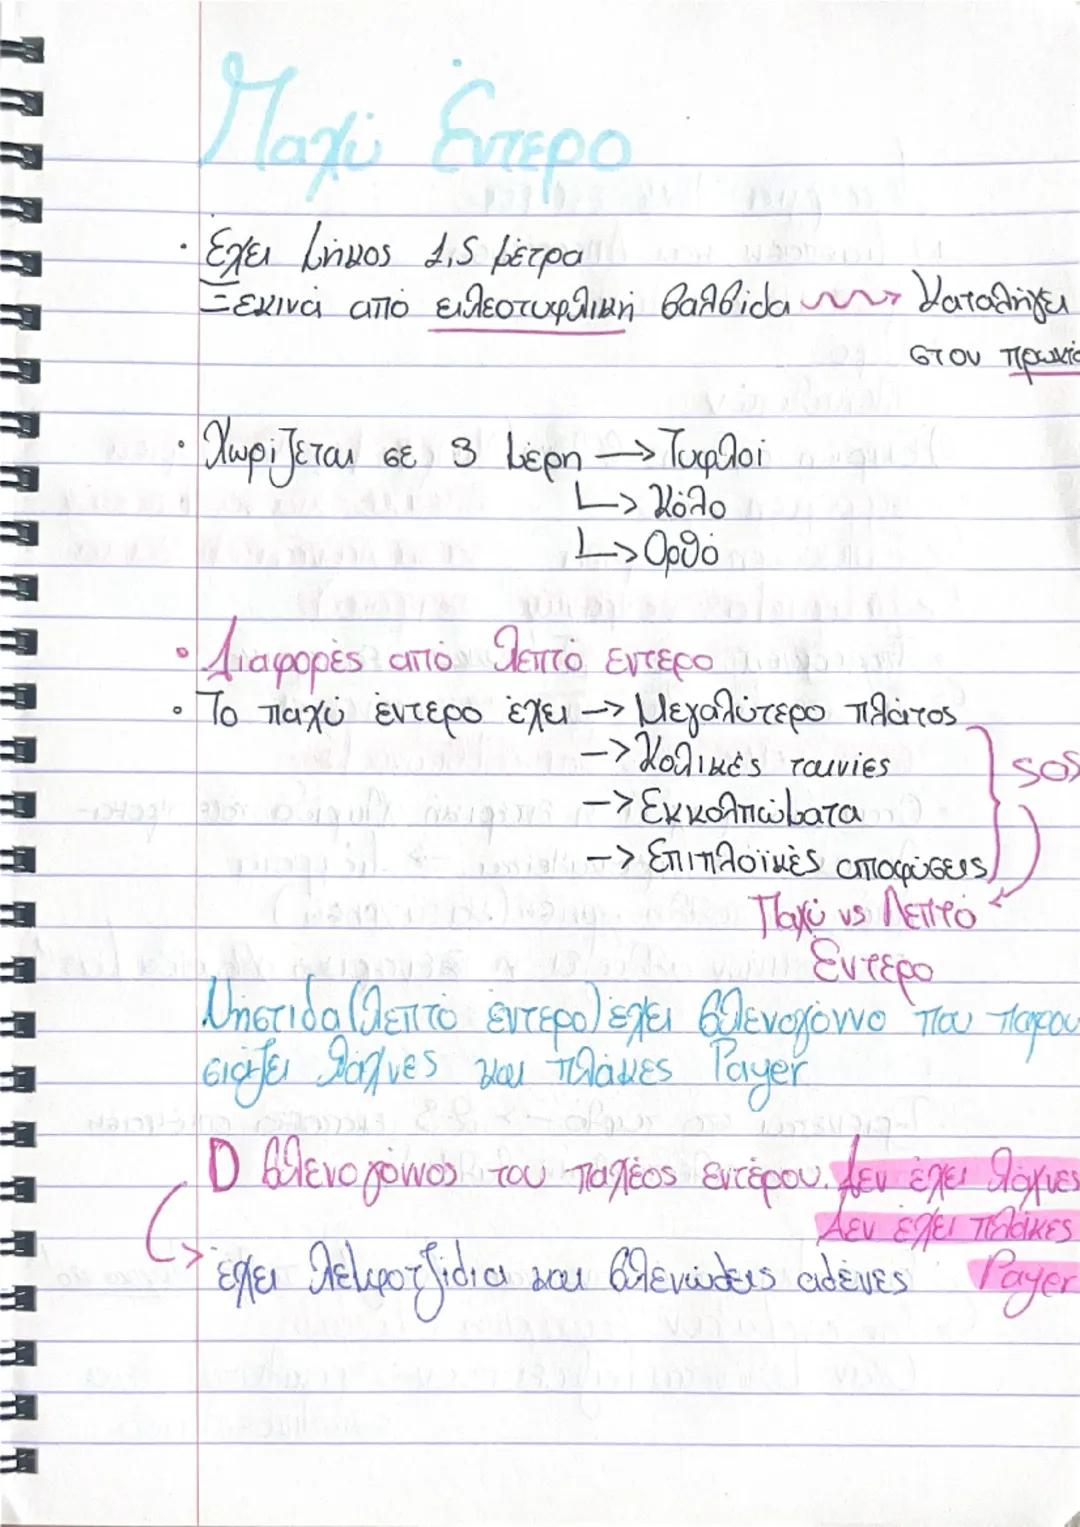 Παχύ Έντερο
· Έχει μήκος 1,5 μέτρα
Ξεκινά από ειλεοτυφλική βαλβίδα → Καταλήγει
στον πρωκτό
· Χωρίζεται σε 3 μέρη → Τυφλοί
↳ Κόλο
↳ Ορθό
· Διαφορές από λεπτό εντερο
· Το παχύ έντερο έχει → Μεγαλύτερο πλάτος
→ Κολικές ταινίες
→ Εκκολπώματα
→ Επιπλοϊκές αποφύσεις
SOS
Παχύ vs Λεπτό
Έντερο
Νήστιδα (λεπτό έντερο) έχει βλενογόννο που παρου
σιάζει λάχνες και πλάκες Payer
Ο βλενογόννος του παχέος εντέρου. Δεν έχει λάχνες
Δεν έχει πλάκες
Payer
→ έχει λεμφοζίδια και βλενώδεις αδένες